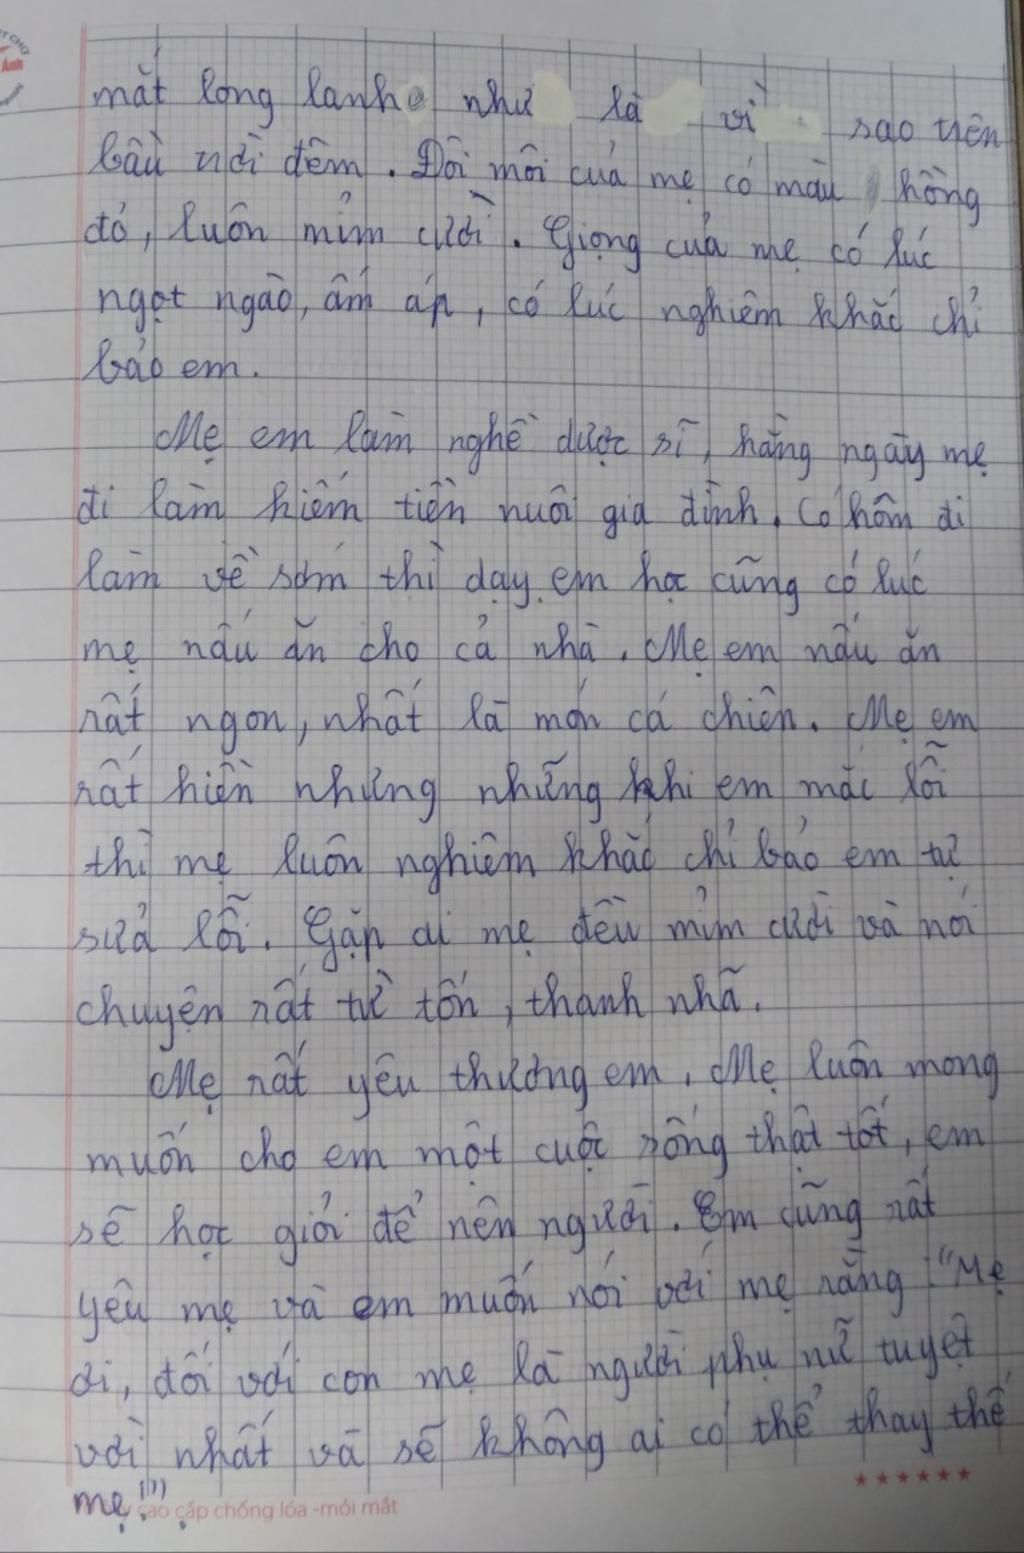 Ánh
mắt long lanh như là vì sao trên
bầu trời đêm. Đôi môi của mẹ có màu hồng
đỏ, luôn mỉm cười. Giọng của mẹ có lúc
ngọt ngào, ấm áp, có lúc nghiêm khắc chỉ
bảo em.
Mẹ em làm nghề dược sĩ, hằng ngày mẹ
đi làm kiếm tiền nuôi gia đình. Có hôm đi
làm về sớm thì dạy em học cũng có lúc
mẹ nấu ăn cho cả nhà. Mẹ em nấu ăn
rất ngon, nhất là món cá chiên. Mẹ em
rất hiền nhưng những khi em mắc lỗi
thì mẹ luôn nghiêm khắc chỉ bảo em tự
sửa lỗi. Gặp ai mẹ đều mỉm cười và nói
chuyện rất từ tốn, thanh nhã.
Mẹ rất yêu thương em. Mẹ luôn mong
muốn cho em một cuộc sống thật tốt, em
sẽ học giỏi để nên người. Em cũng rất
yêu mẹ và em muốn nói với mẹ rằng "Mẹ
ơi, đối với con mẹ là người phụ nữ tuyệt
vời nhất và sẽ không ai có thể thay thế
mẹ
cao cấp chống lóa -mỏi mắt